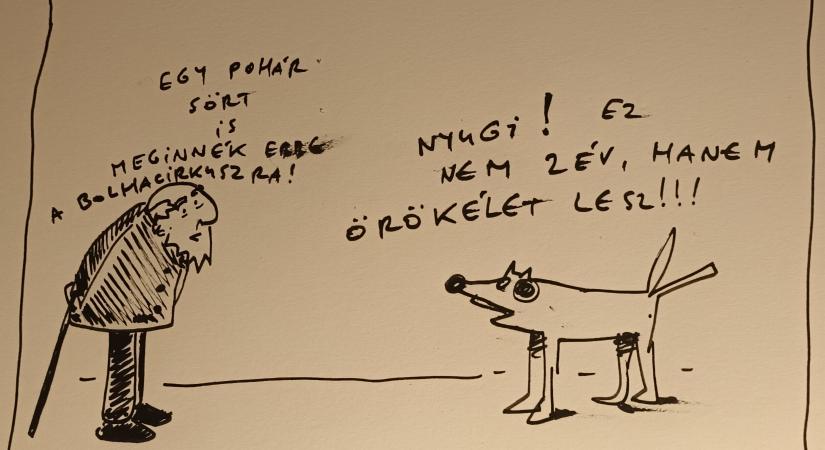 EGY POHÁR
SÖRT
IS
MEGINNÉK ERRE
A BOLHACIRKUSZRA!
NYUGI! EZ
NEM 2 ÉV, HANEM
ÖRÖKÉLET LESZ!!!